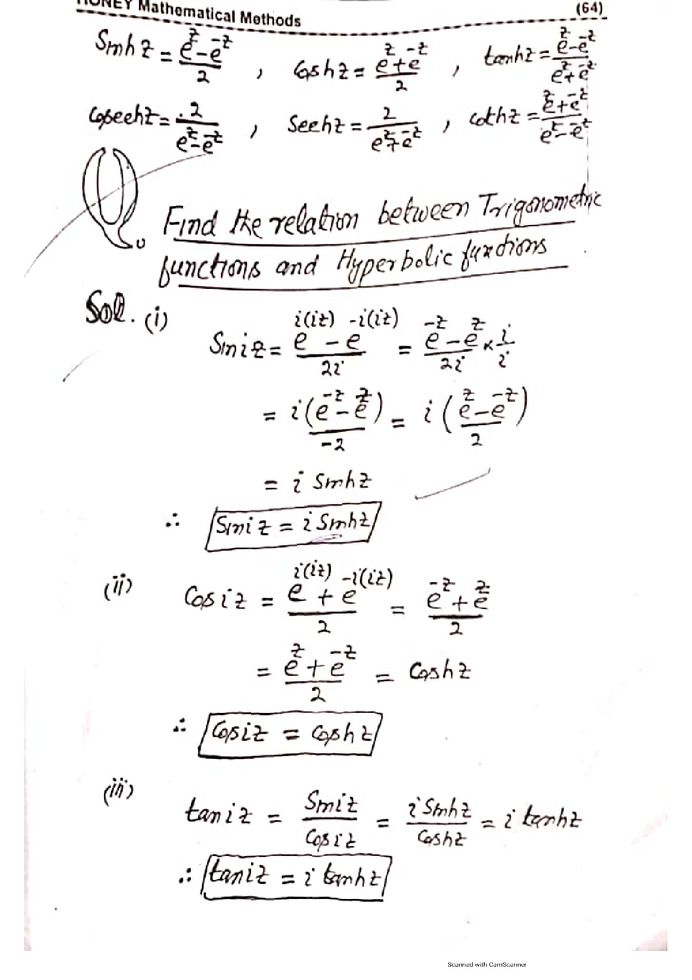 HONEY Mathematical Methods (64)
Sinhz = (e^z - e^-z)/2 , Coshz = (e^z + e^-z)/2 , tanhz = (e^z - e^-z)/(e^z + e^-z)
Cosechz = 2/(e^z - e^-z) , Sechz = 2/(e^z + e^-z) , cothz = (e^z + e^-z)/(e^z - e^-z)
Q. Find the relation between Trigonometric
functions and Hyperbolic functions.
Sol. (i) Siniz = (e^i(iz) - e^-i(iz))/2i = (e^-z - e^z)/2i × i/i
= i(e^-z - e^z)/-2 = i((e^z - e^-z)/2)
= i Sinhz
∴ Siniz = i Sinhz
(ii) Cosiz = (e^i(iz) + e^-i(iz))/2 = (e^-z + e^z)/2
= (e^z + e^-z)/2 = Coshz
∴ Cosiz = Coshz
(iii) taniz = Siniz/Cosiz = i Sinhz/Coshz = i tanhz
∴ taniz = i tanhz
Scanned with CamScanner